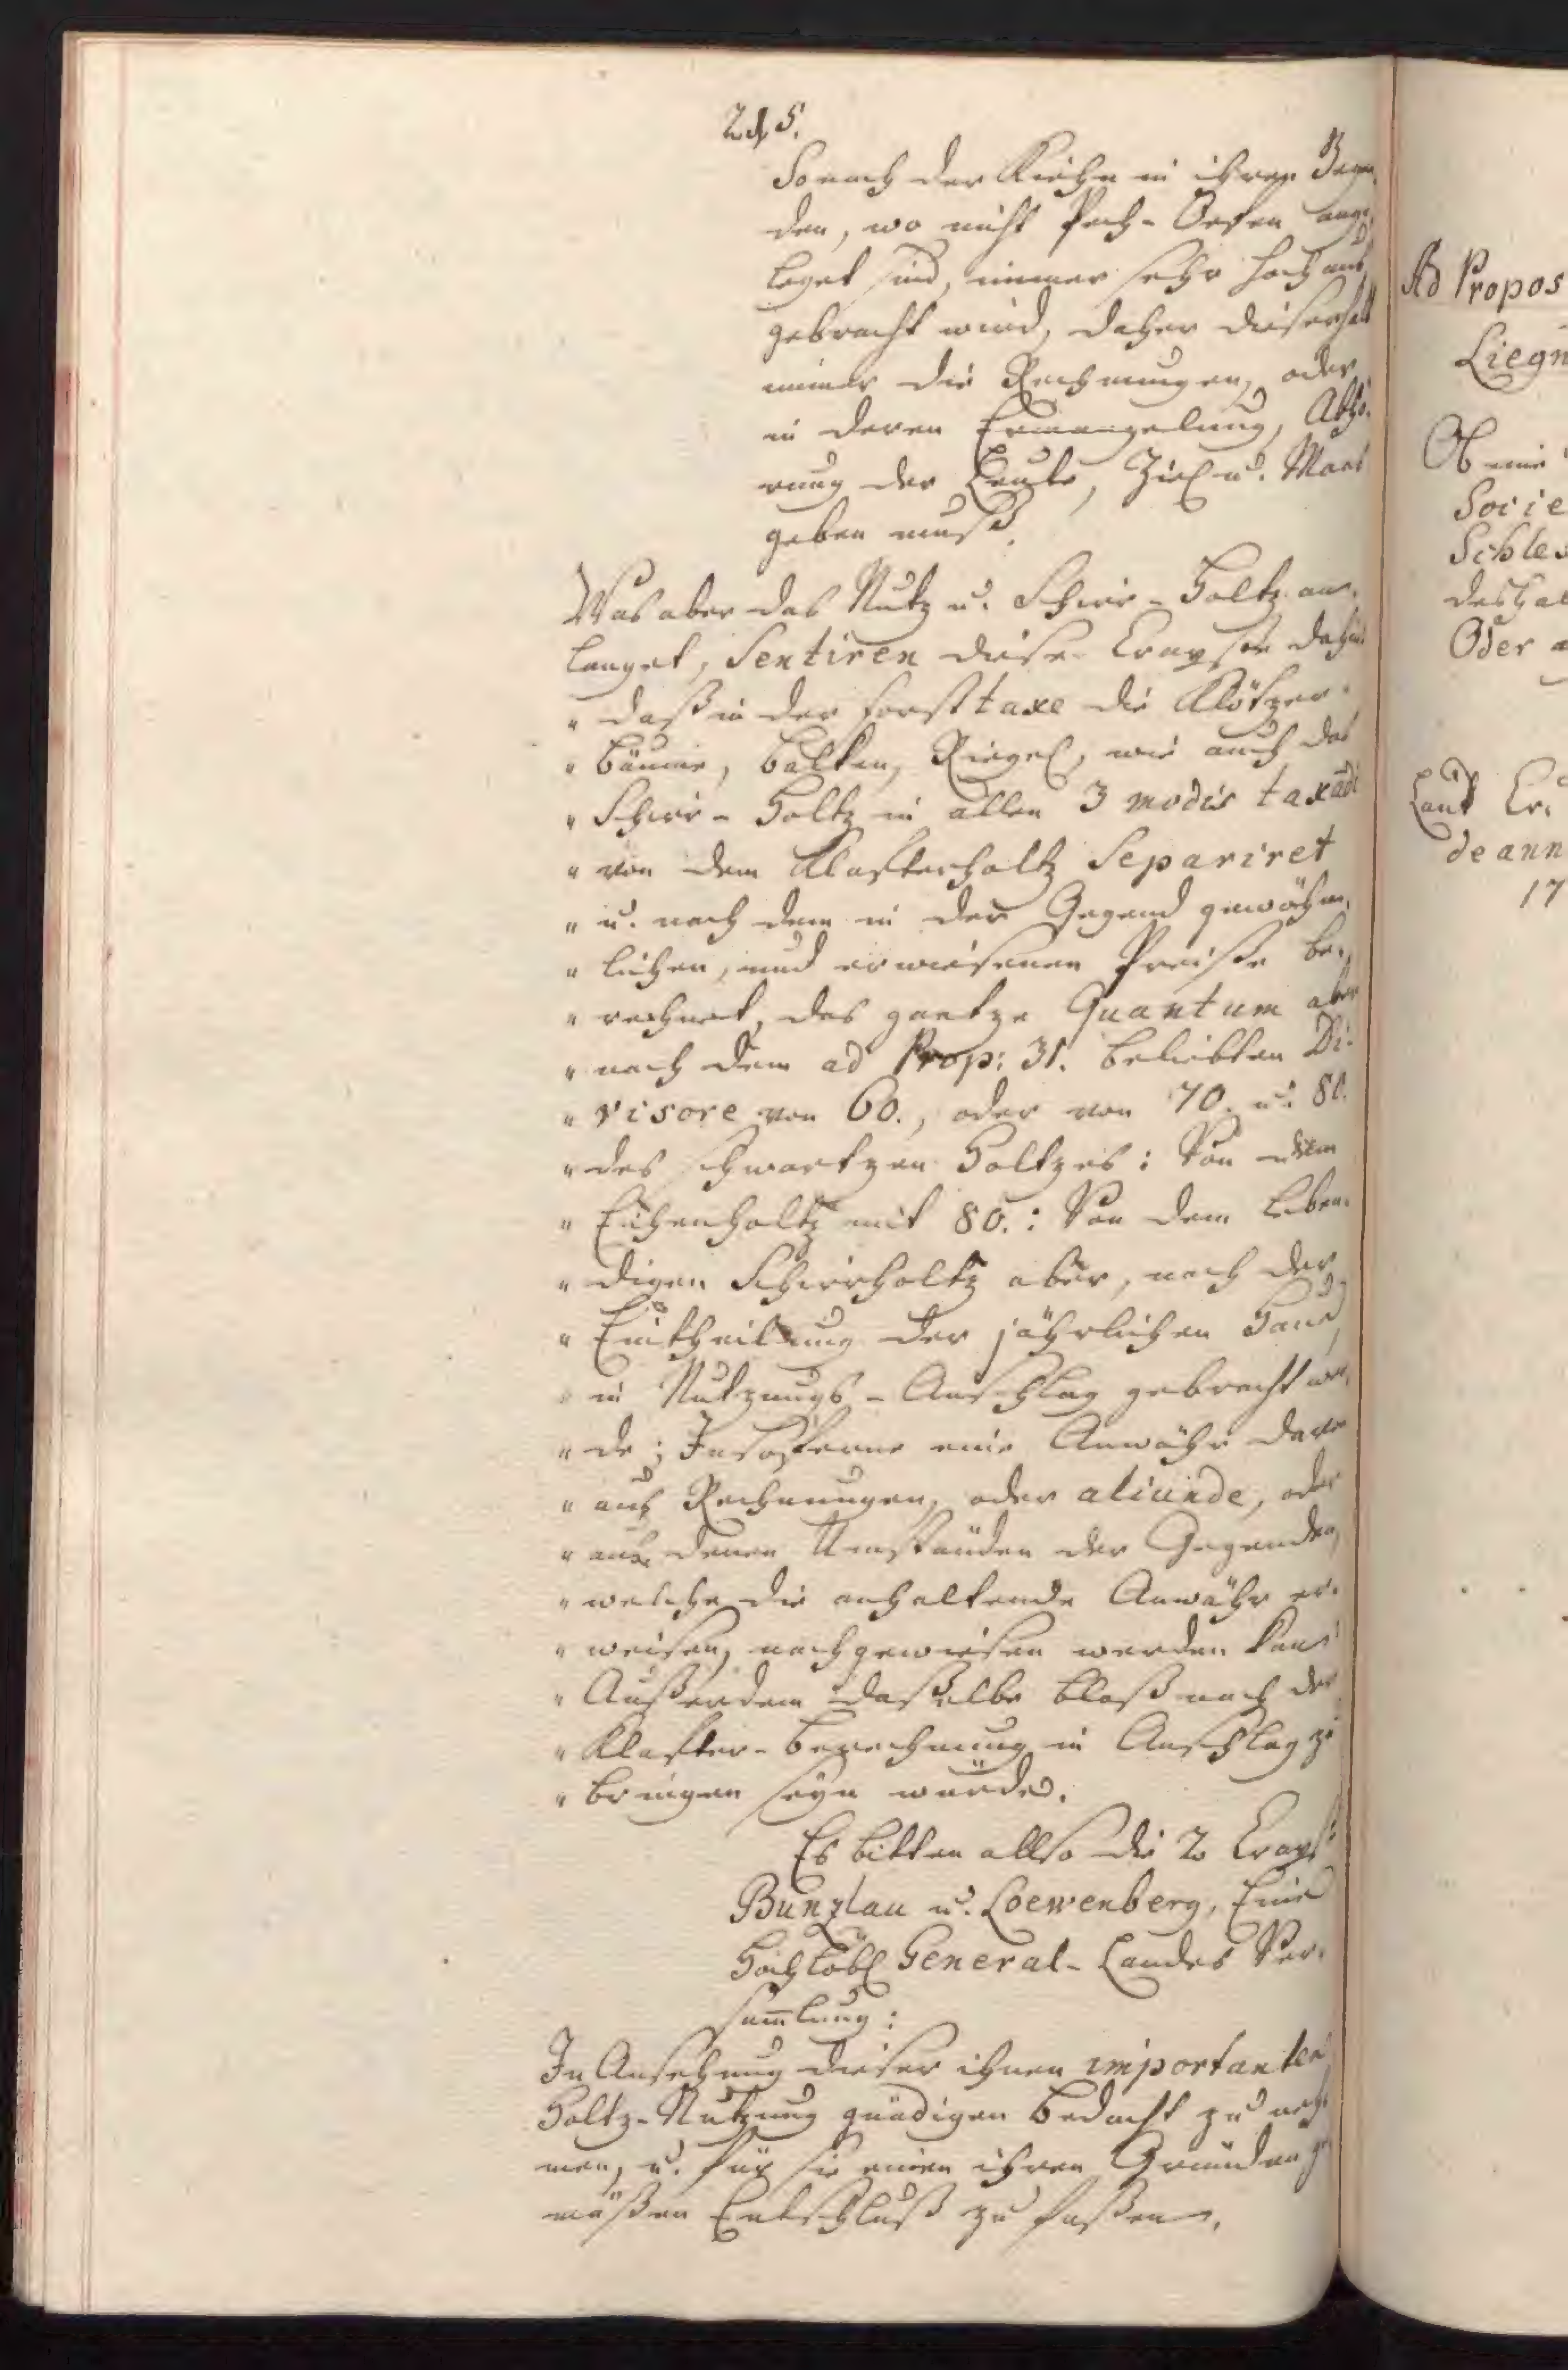 So nach der Kiehn in ihren Gegen-
den, wo nicht Pech-Oefen ange-
leget sind, immer sehr hoch aus
gebracht wird, daher dieserhalb
immer die Rechnungen, oder
in deren Ermangelung, Abhö-
rung der Leute, Ziel u. Maas
geben muß.
Was aber das Nutz u. Schirr-Holtz an-
langet, Sentiren diese Crayse dahin
" daß in der Forst taxe die Klötzer
" Bäume, Balken, Riegel, wie auch das
" Schirr-Holtz in allen 3 modis taxadi
" von dem Klafterholtz Separiret
" u. nach dem in der Gegend gewöhn-
" lichen, und erwiesenen Preiße be-
" rechnet, das gantze Quantum aber
" nach dem ad Prop: 31. beliebten Di-
" visore von 60., oder von 70. u. 80.
" des schwartzen Holtzes: Von dem
" Eichenholtz mit 80.: Von dem leben-
" digen Schirrholtz aber, nach der
" Eintheilung der jährlichen Haue
" in Nutzungs-Anschlag gebracht wer-
" de; Insoferne eine Anwähr davon
" aus Rechnungen, oder aliunde, oder
" aus denen Umständen der Gegenden,
" welche die anhaltende Anwähr er-
" weisen, nachgewiesen werden kan
" Außerdem daßelbe bloß nach der
" Klafter-Berechnung in Anschlag zu
" bringen seyn würde.
Es bitten allso die 2 Crayse
Bunzlau u. Loewenberg, Eine
Hochlöbl General-Landes Ver-
sam̄lung:
In Ansehung dieser ihnen importanten
Holtz-Nutzung gnädigen Bedacht zu neh-
men, u. für sie einen ihren Gründen ge-
mäßen Entschluß zu faßen.
Ad Propos
Liegn
Ob eine
Socie
Schles
deshal
Oder a
Laut Er.
de ann
17